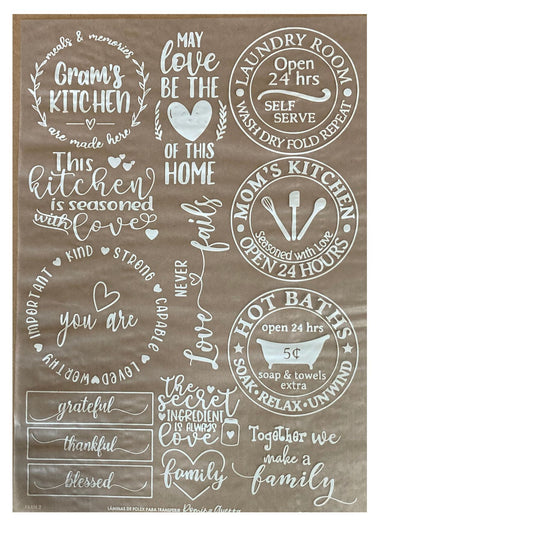 meals & memories
Gram's
KITCHEN
are made here
MAY
love
BE THE
OF THIS
HOME
LAUNDRY ROOM
Open
24 hrs
SELF
SERVE
WASH DRY FOLD REPEAT
This
kitchen
is seasoned
with love
NEVER
Love fails
MOM'S KITCHEN
Seasoned with Love
OPEN 24 HOURS
IMPORTANT KIND STRONG CAPABLE LOVED WORTHY
you are
HOT BATHS
open 24 hrs
5¢
soap & towels
extra
SOAK · RELAX · UNWIND
grateful
thankful
blessed
The
secret
INGREDIENT
IS ALWAYS
love
family
Together we
make a
family
LÁMINAS DE FOLEX PARA TRANSFERIR